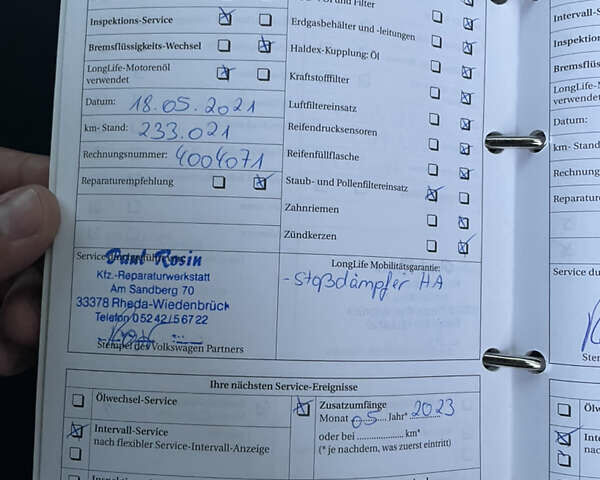 Öl und Filter
Inspektions-Service
Bremsflüssigkeits-Wechsel
LongLife-Motorenöl
verwendet
Datum: 18.05.2021
km- Stand: 233.021
Rechnungsnummer: 4004071
Reparaturempfehlung
Erdgasbehälter und -leitungen
Haldex-Kupplung: Öl
Kraftstofffilter
Luftfiltereinsatz
Reifendrucksensoren
Reifenfüllflasche
Staub- und Pollenfiltereinsatz
Zahnriemen
Zündkerzen
Paul Rosin
Kfz.-Reparaturwerkstatt
Am Sandberg 70
33378 Rheda-Wiedenbrück
Telefon 05242/56722
Stempel des Volkswagen Partners
LongLife Mobilitätsgarantie:
-Stoßdämpfer HA
Ihre nächsten Service-Ereignisse
Ölwechsel-Service
Intervall-Service
nach flexibler Service-Intervall-Anzeige
Zusatzumfänge
Monat 05 Jahr* 2023
oder bei .................... km*
(* je nachdem, was zuerst eintritt)
Intervall-S
Inspektion
Bremsflüss
LongLife-M
verwendet
Datum:
km- Stand:
Rechnung
Reparature
Service du
Stem
Ölw
Inte
nach